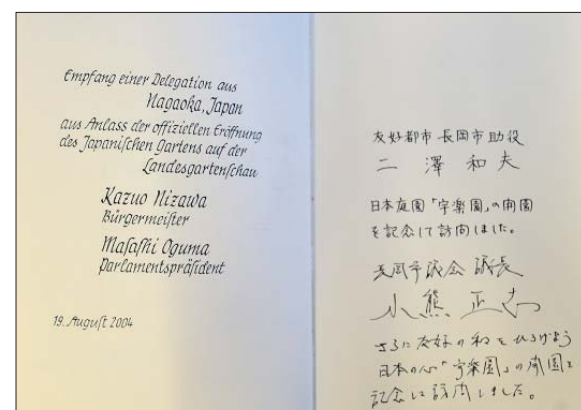 Empfang einer Delegation aus
Nagaoka, Japan
aus Anlass der offiziellen Eröffnung
des Japaniſchen Gartens auf der
Landesgartenſchau
Kazuo Nizawa
Bürgermeiſter
Maſaſhi Oguma
Parlamentspräſident
19. Auguſt 2004
友好都市 長岡市助役
二澤和夫
日本庭園「宇楽園」の開園
を記念して訪問しました。
長岡市議会 議長
小熊正志
さらに友好の和をひろげよう
日本の心“宇楽園”の開園を
記念し訪問しました。